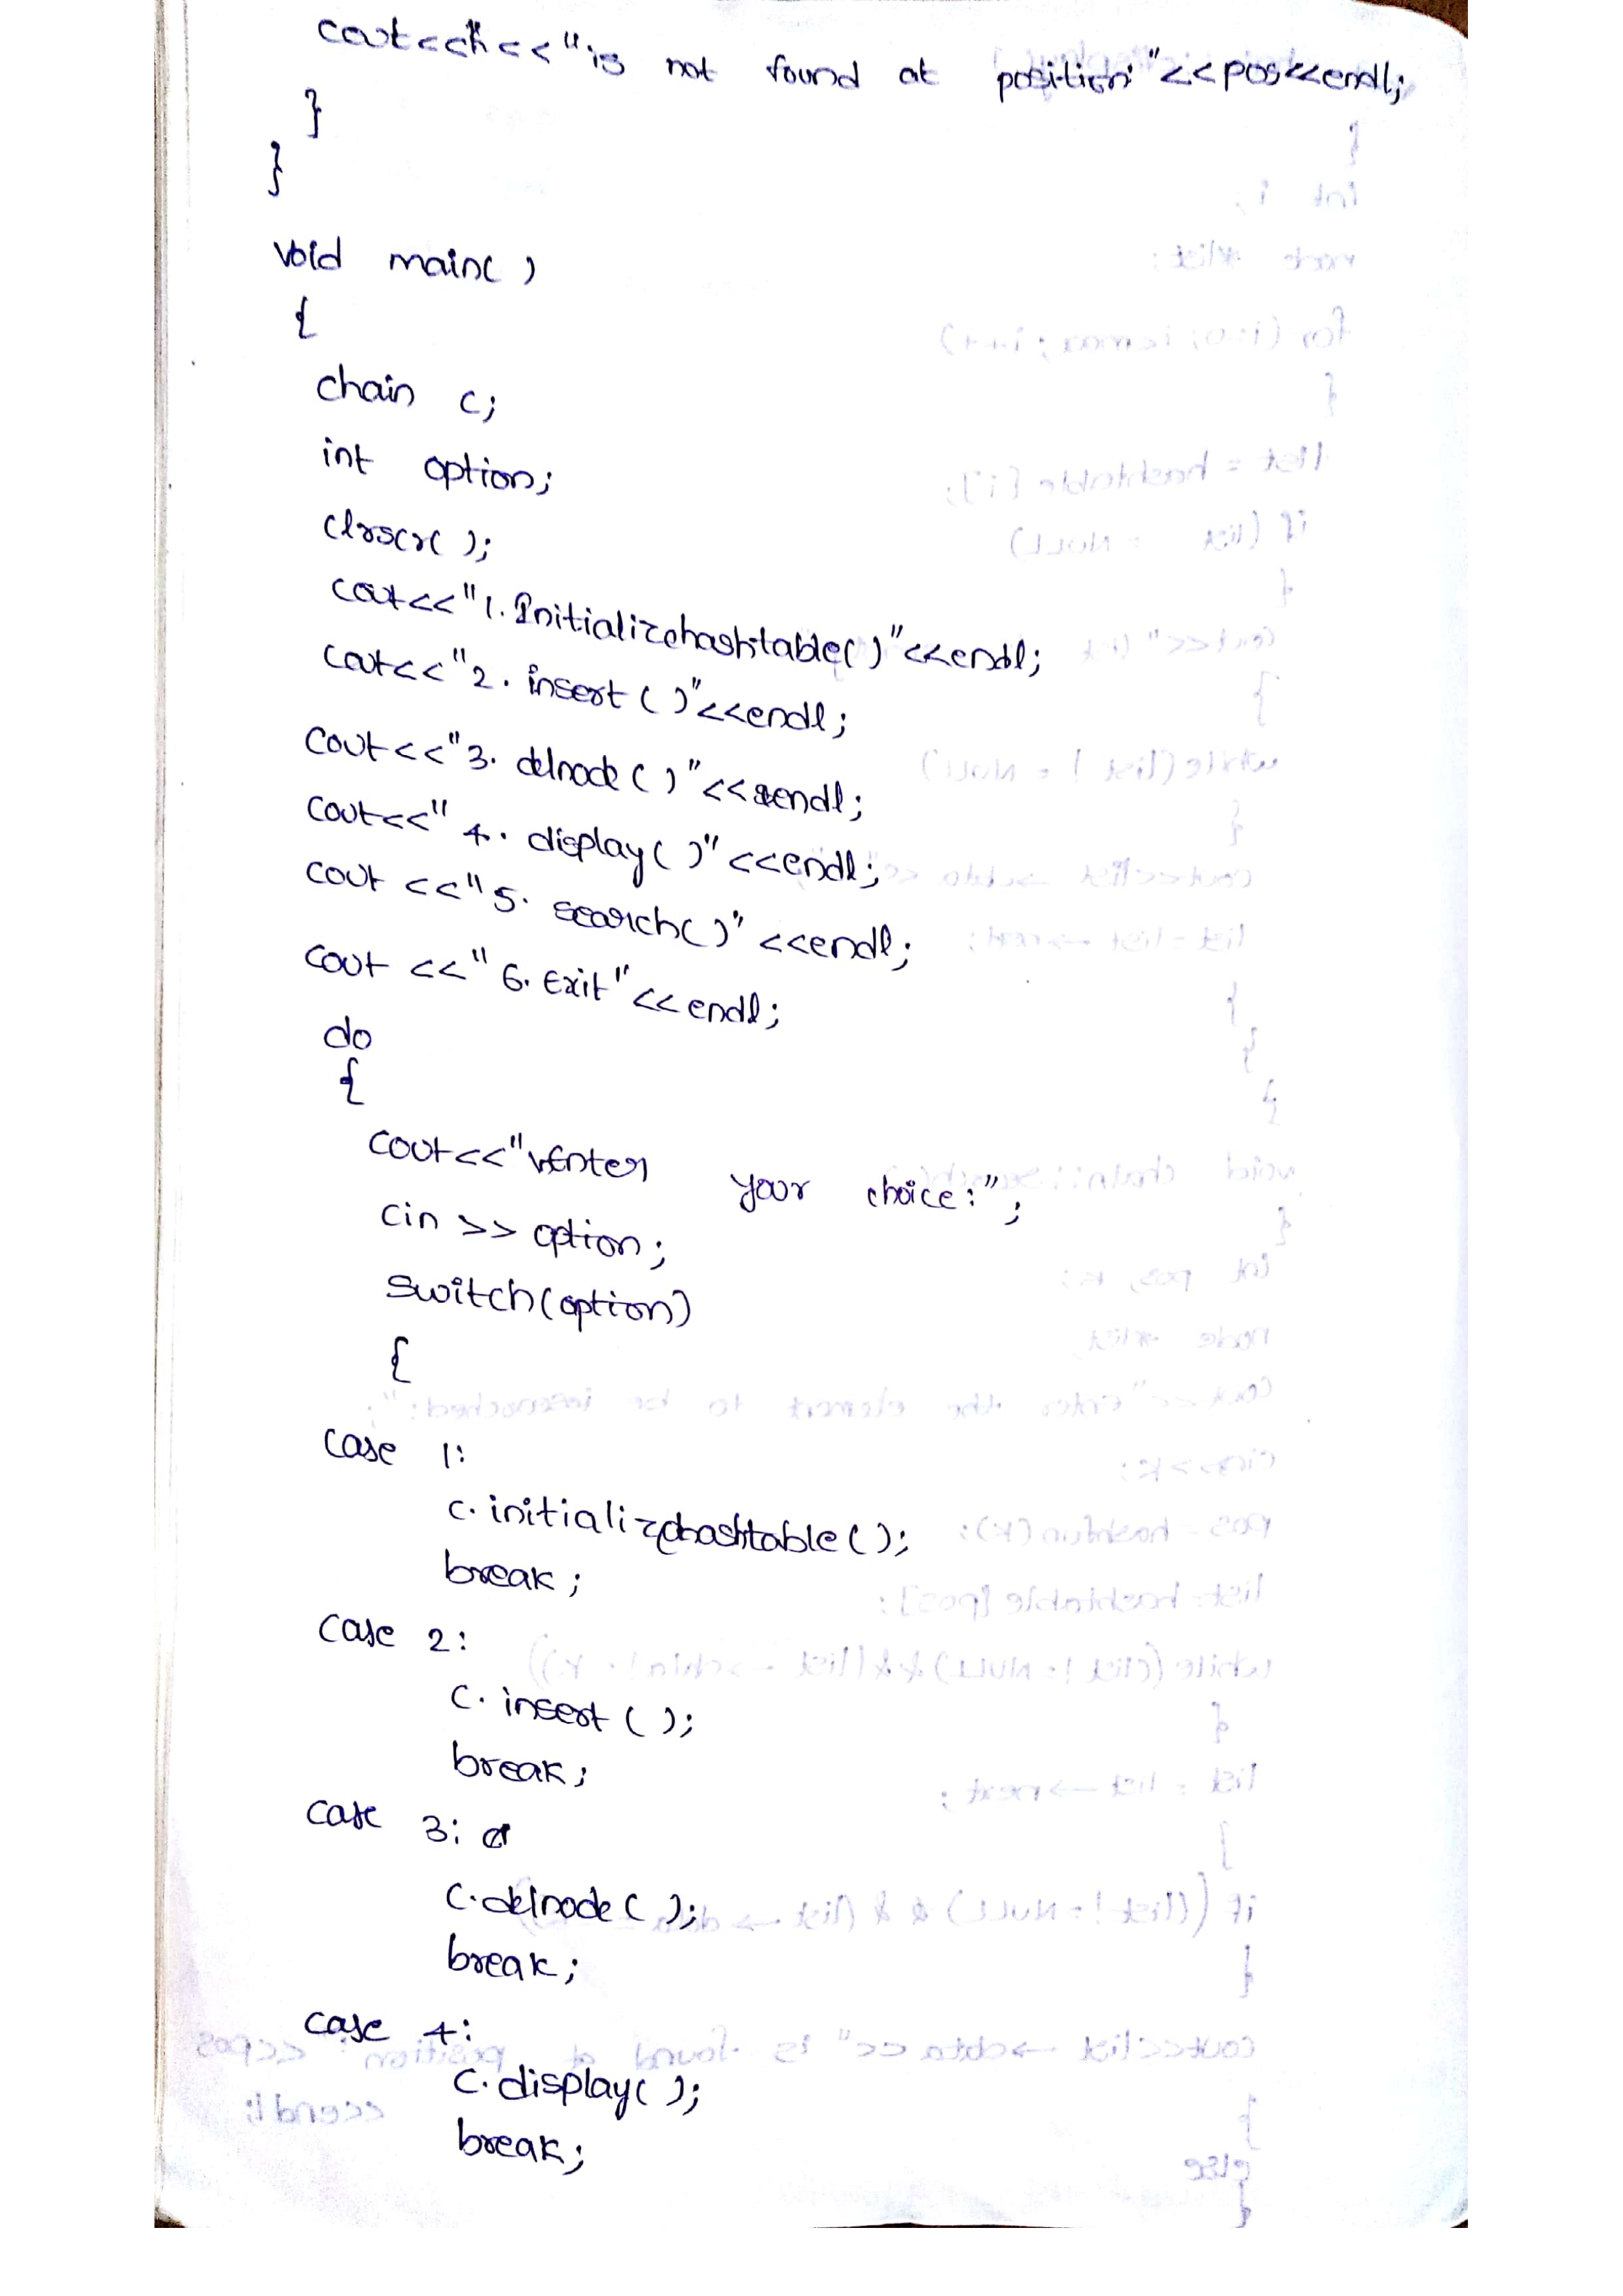 cout<<k<<"is not found at position"<<pos<<endl;
}
}
void main( )
{
chain c;
int option;
clrscr( );
cout<<"1. Initializehashtable( )"<<endl;
cout<<"2. insert ( )"<<endl;
cout<<"3. delnode ( )"<<endl;
cout<<" 4. display( )" <<endl;
cout <<"5. search( )" <<endl;
cout <<" 6. Exit"<<endl;
do
{
cout<<"\nEnter your choice:";
cin >> option;
switch(option)
{
case 1:
c. initializehashtable( );
break;
case 2:
c. insert ( );
break;
case 3:
c.delnode ( );
break;
case 4:
c. display( );
break;